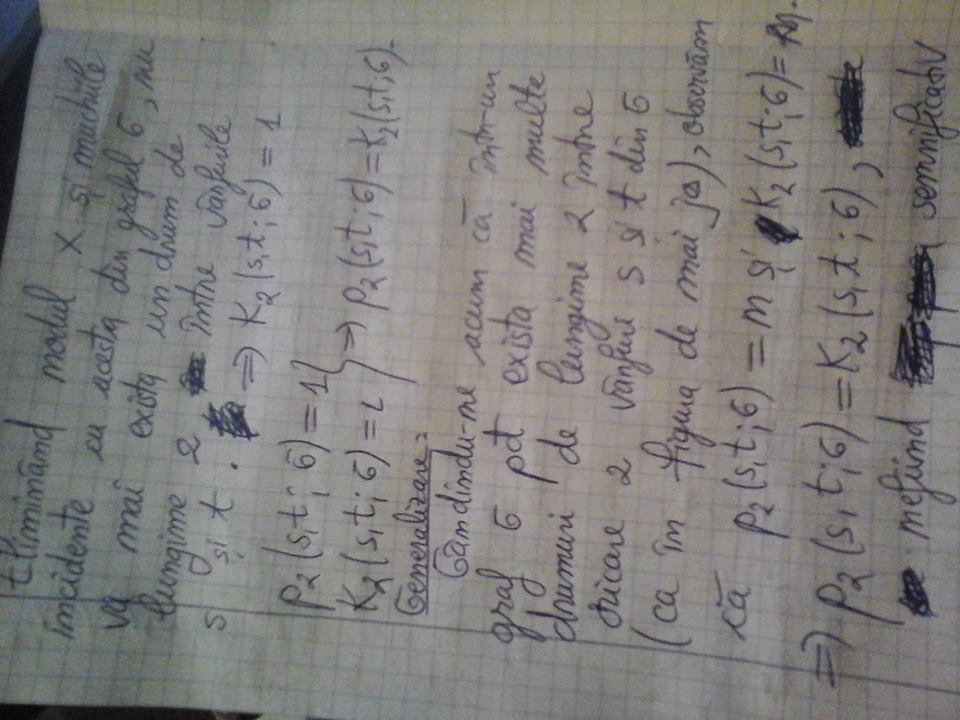 Eliminând nodul x și muchiile
incidente cu acesta din graful G, nu
va mai exista un drum de
lungime 2 între vârfurile
s și t. => K₂(s,t;G) = 1
p₂(s,t;G) = 1
K₂(s,t;G) = 1 } => p₂(s,t;G) = K₂(s,t;G).
Generalizare:
Gândindu-ne acum că într-un
graf G pot exista mai multe
drumuri de lungime 2 între
oricare 2 vârfuri s și t din G
(ca în figura de mai jos), observăm
că p₂(s,t;G) = m și K₂(s,t;G) = m.
=> p₂(s,t;G) = K₂(s,t;G),
nefiind semnificativ